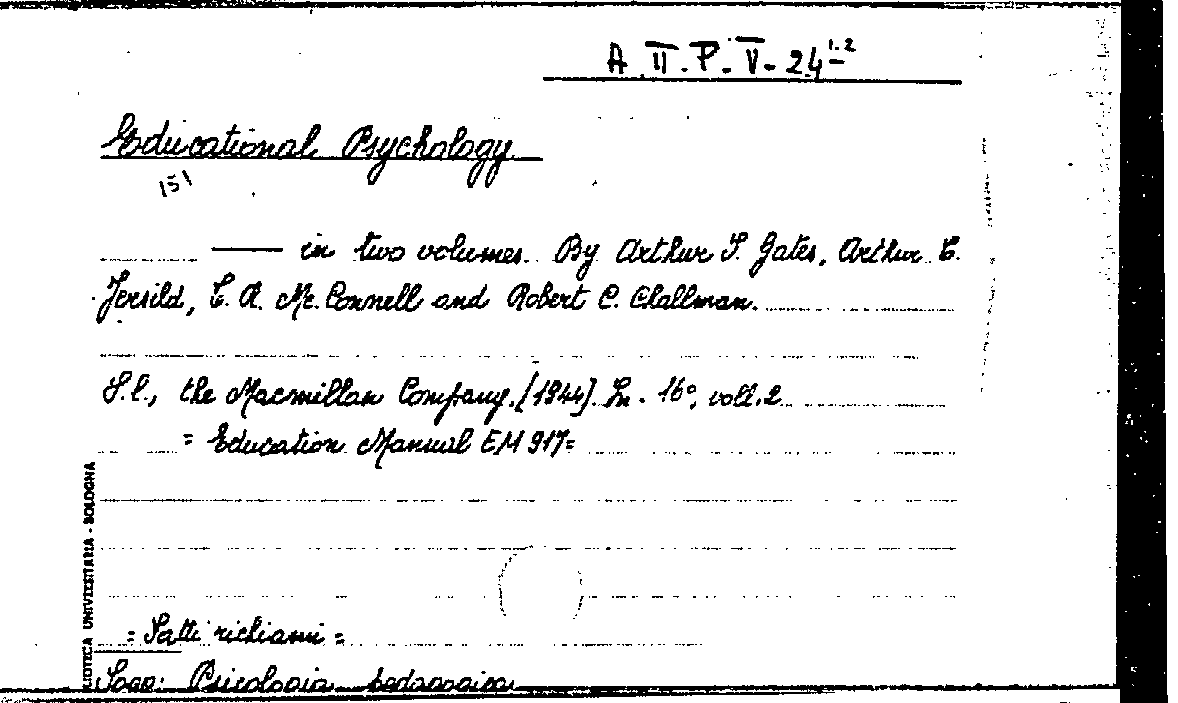 A II. P. V - 24 1-2
Educational Psychology
151
—— in two volumes. By Arthur I. Gates, Arthur T.
Jersild, T. R. Mc. Connell and Robert C. Challman.
S.l., the Macmillan Company. [1944]. In. 16°, voll. 2
= Education Manual EM 917=
LIOTECA UNIVERSITARIA - BOLOGNA
= Fatti richiami =
Sogg: Psicologia pedagogica